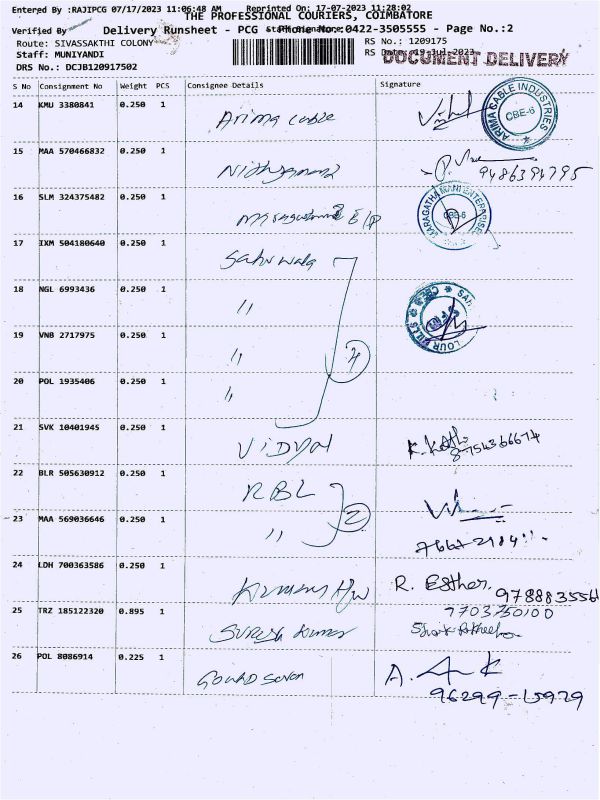 Entered By :RAJIPCG 07/17/2023 11:06:48 AM Reprinted On: 17-07-2023 11:28:02
THE PROFESSIONAL COURIERS, COIMBATORE
Verified By Delivery Runsheet - PCG Staff Signature Phone No.:0422-3505555 - Page No.:2
Route: SIVASSAKTHI COLONY RS No.: 1209175
Staff: MUNIYANDI RS Date: 19-Jul-2023
DOCUMENT DELIVERY
DRS No.: DCJB120917502
S No Consignment No Weight PCS Consignee Details Signature
14 KMU 3380841 0.250 1 Arima Cable
ARIMA CABLE INDUSTRIES CBE-6
15 MAA 570466832 0.250 1
9486394795
16 SLM 324375482 0.250 1
MARAGATHA MANI ENTERPRISES CBE-6
17 IXM 504180640 0.250 1
18 NGL 6993436 0.250 1 "
19 VNB 2717975 0.250 1 "
20 POL 1935406 0.250 1 "
21 SVK 10401945 0.250 1 Vidyal
22 BLR 505630912 0.250 1 RBL
23 MAA 569036646 0.250 1 " 2
24 LDH 700363586 0.250 1 R. Esther,
25 TRZ 185122320 0.895 1 Suresh Kumar 7703750100
26 POL 8086914 0.225 1 A.
96299-15929